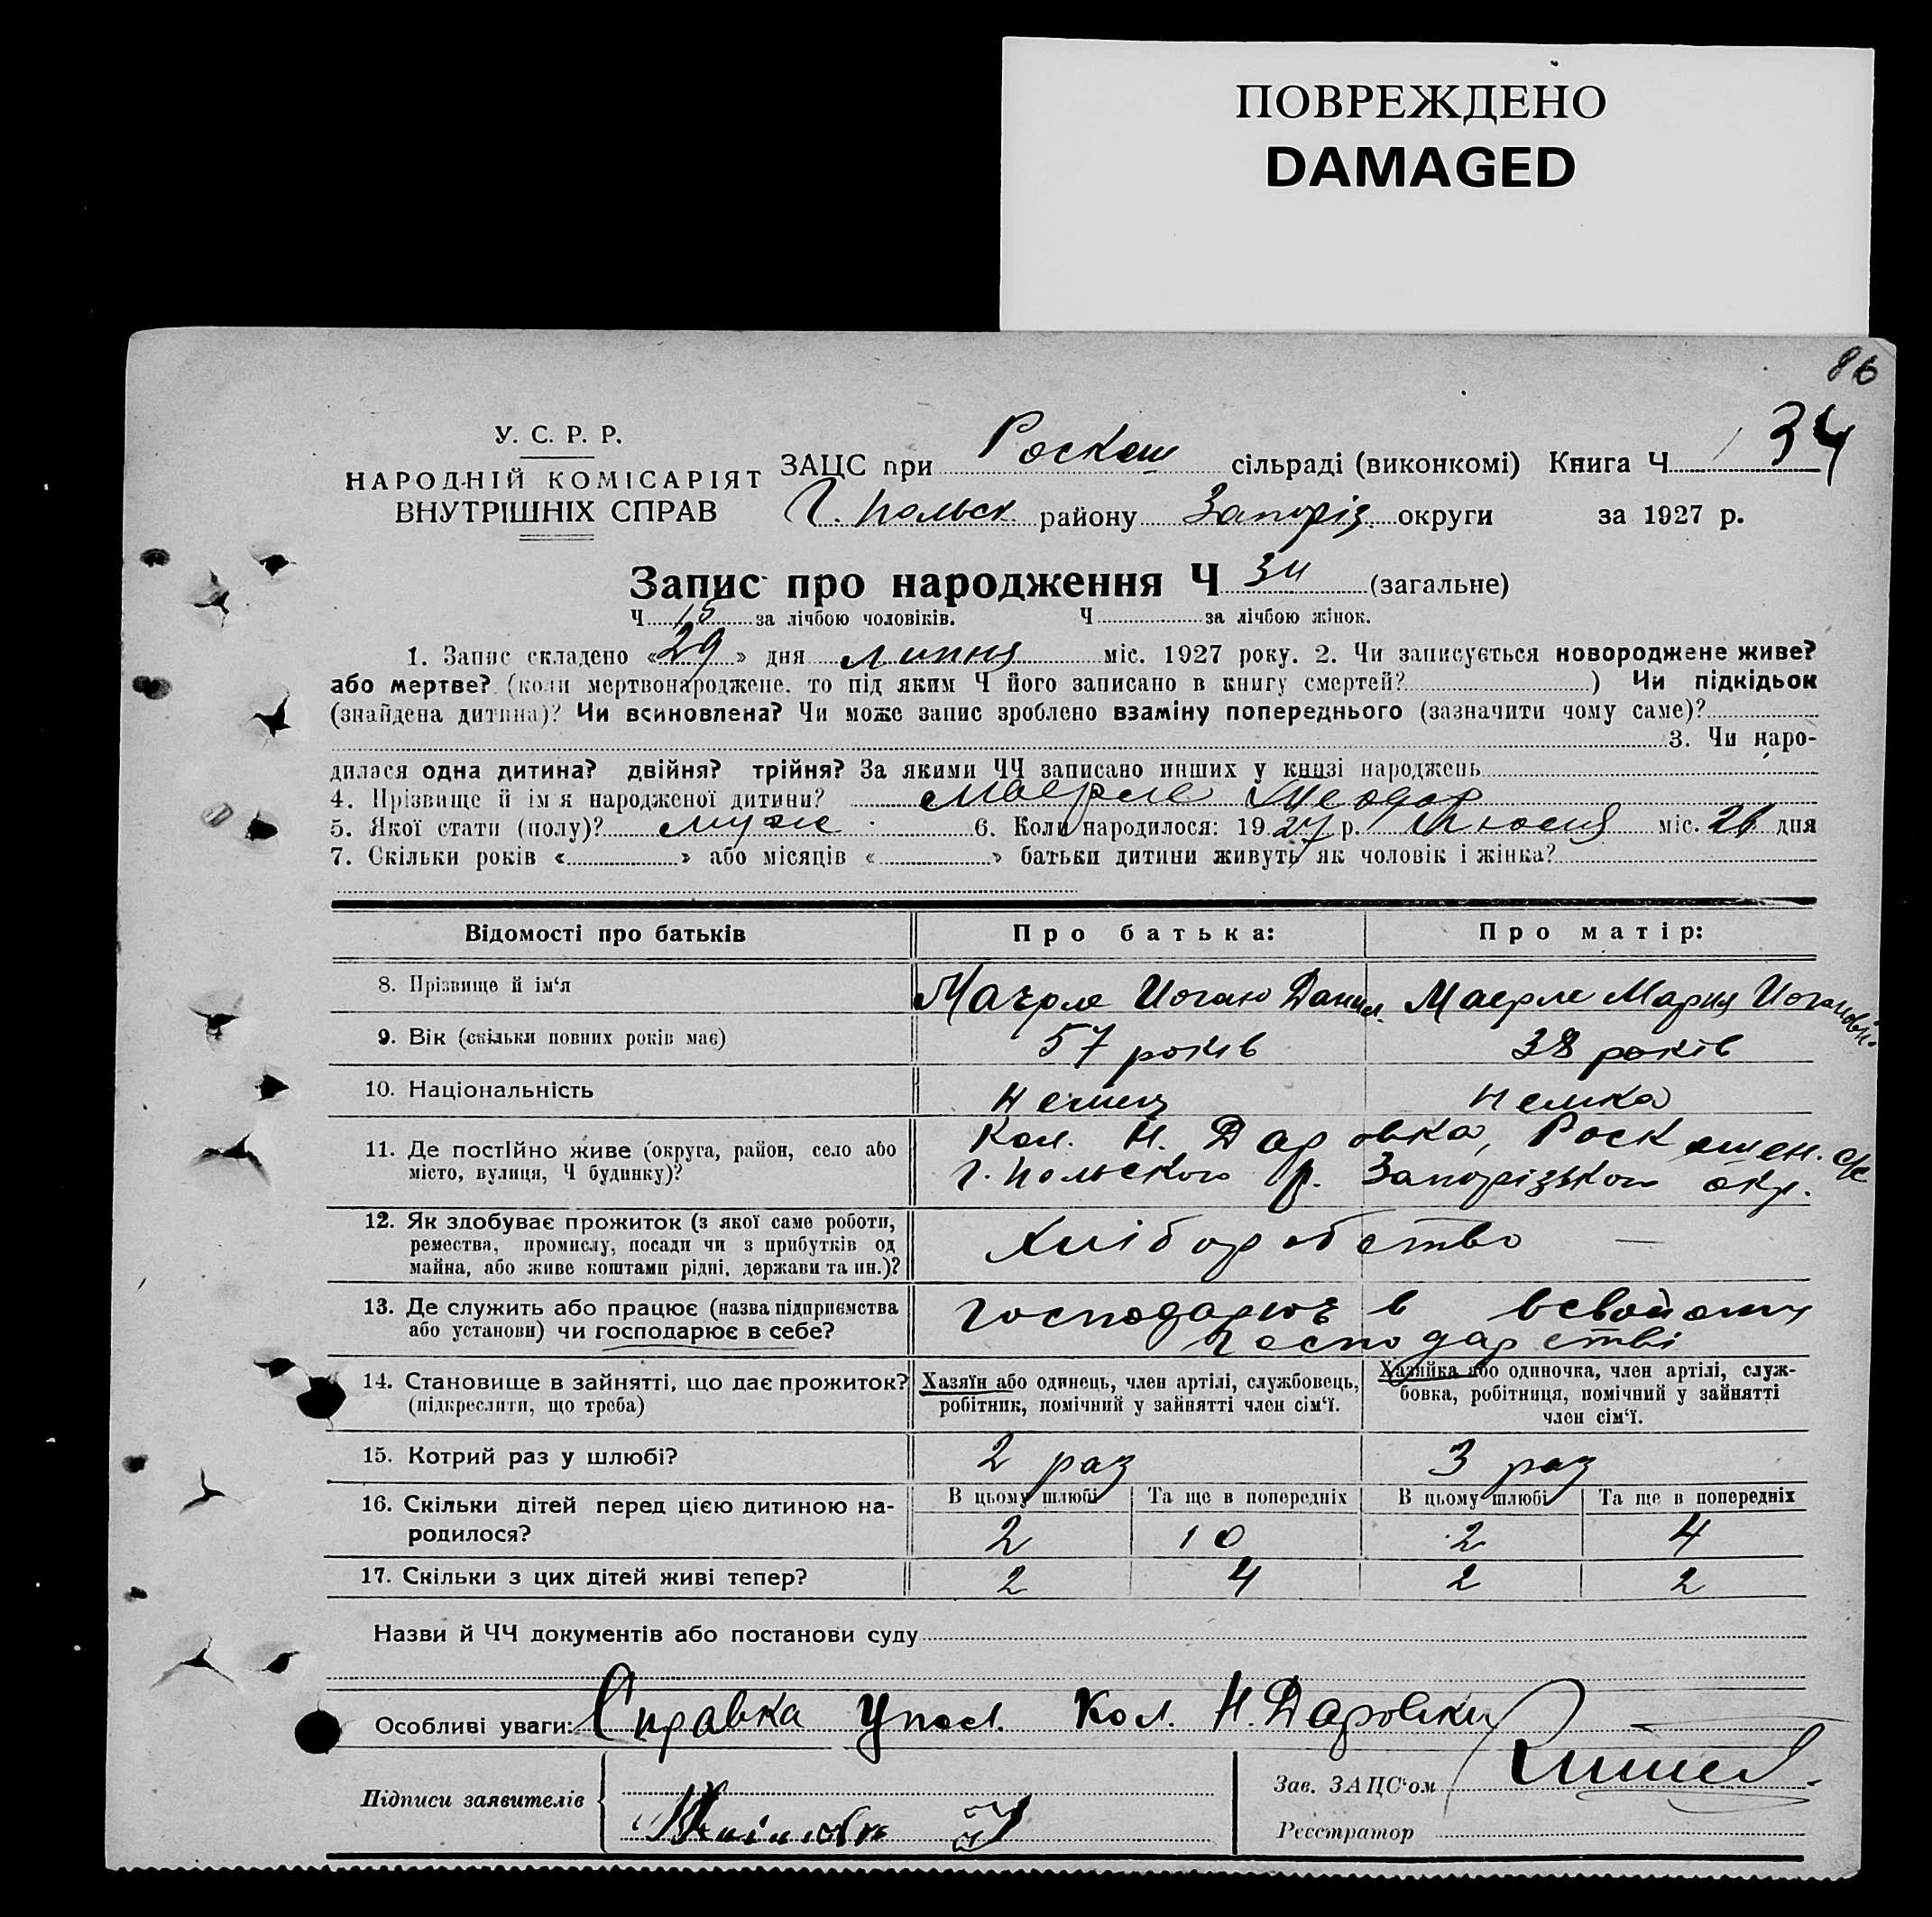 ПОВРЕЖДЕНО
DAMAGED
86
У. С. Р. Р.
НАРОДНІЙ КОМІСАРІЯТ
ВНУТРІШНІХ СПРАВ
ЗАЦС при Роскош сільраді (виконкомі) Книга Ч 34
Г. Польск. району Запоріз. округи за 1927 р.
Запис про народження Ч 34 (загальне)
Ч 15 за лічбою чоловіків. Ч за лічбою жінок.
1. Запис складено «29» дня липня міс. 1927 року. 2. Чи записується новороджене живе?
або мертве? (коли мертвонароджене, то під яким Ч його записано в книгу смертей?) Чи підкідьок
(знайдена дитина)? Чи всиновлена? Чи може запис зроблено взаміну попереднього (зазначити чому саме)?
3. Чи наро-
дилася одна дитина? двійня? трійня? За якими ЧЧ записано инших у книзі народжень
4. Прізвище й ім я народженої дитини? Маерле Теодор
5. Якої стати (полу)? муж. 6. Коли народилося: 1927 р. міс. 26 дня
7. Скільки років « » або місяців « » батьки дитини живуть як чоловік і жінка?
Відомості про батьків
Про батька:
Про матір:
8. Прізвище й ім‘я
Маерле Иоган Данил.
Маерле Мария Иогановн.
9. Вік (скільки повних років має)
57 років
38 років
10. Національність
немец
немка
11. Де постійно живе (округа, район, село або
місто, вулиця, Ч будинку)?
Кол. Н. Даровка, Роскошен. с/с
Г. Польского р. Запорізькои окр.
12. Як здобуває прожиток (з якої саме роботи,
ремества, промислу, посади чи з прибутків од
майна, або живе коштами рідні, держави та ин.)?
Хліборобство —
13. Де служить або працює (назва підприємства
або установи) чи господарює в себе?
господарює в
господарстві
14. Становище в зайнятті, що дає прожиток?
(підкреслити, що треба)
Хазяїн або одинець, член артілі, службовець,
робітник, помічний у зайнятті член сім‘ї.
Хазяйка або одиночка, член артілі, служ-
бовка, робітниця, помічний у зайнятті
член сім‘ї.
15. Котрий раз у шлюбі?
2 раз
3 раз
16. Скільки дітей перед цією дитиною на-
родилося?
В цьому шлюбі Та ще в попередніх В цьому шлюбі Та ще в попередніх
2 10 2 4
17. Скільки з цих дітей живі тепер?
2 4 2 2
Назви й ЧЧ документів або постанови суду
Особливі уваги: Справка Упол. Кол. Н. Даровки
Підписи заявителів
Зав. ЗАЦС‘ом
Реєстратор